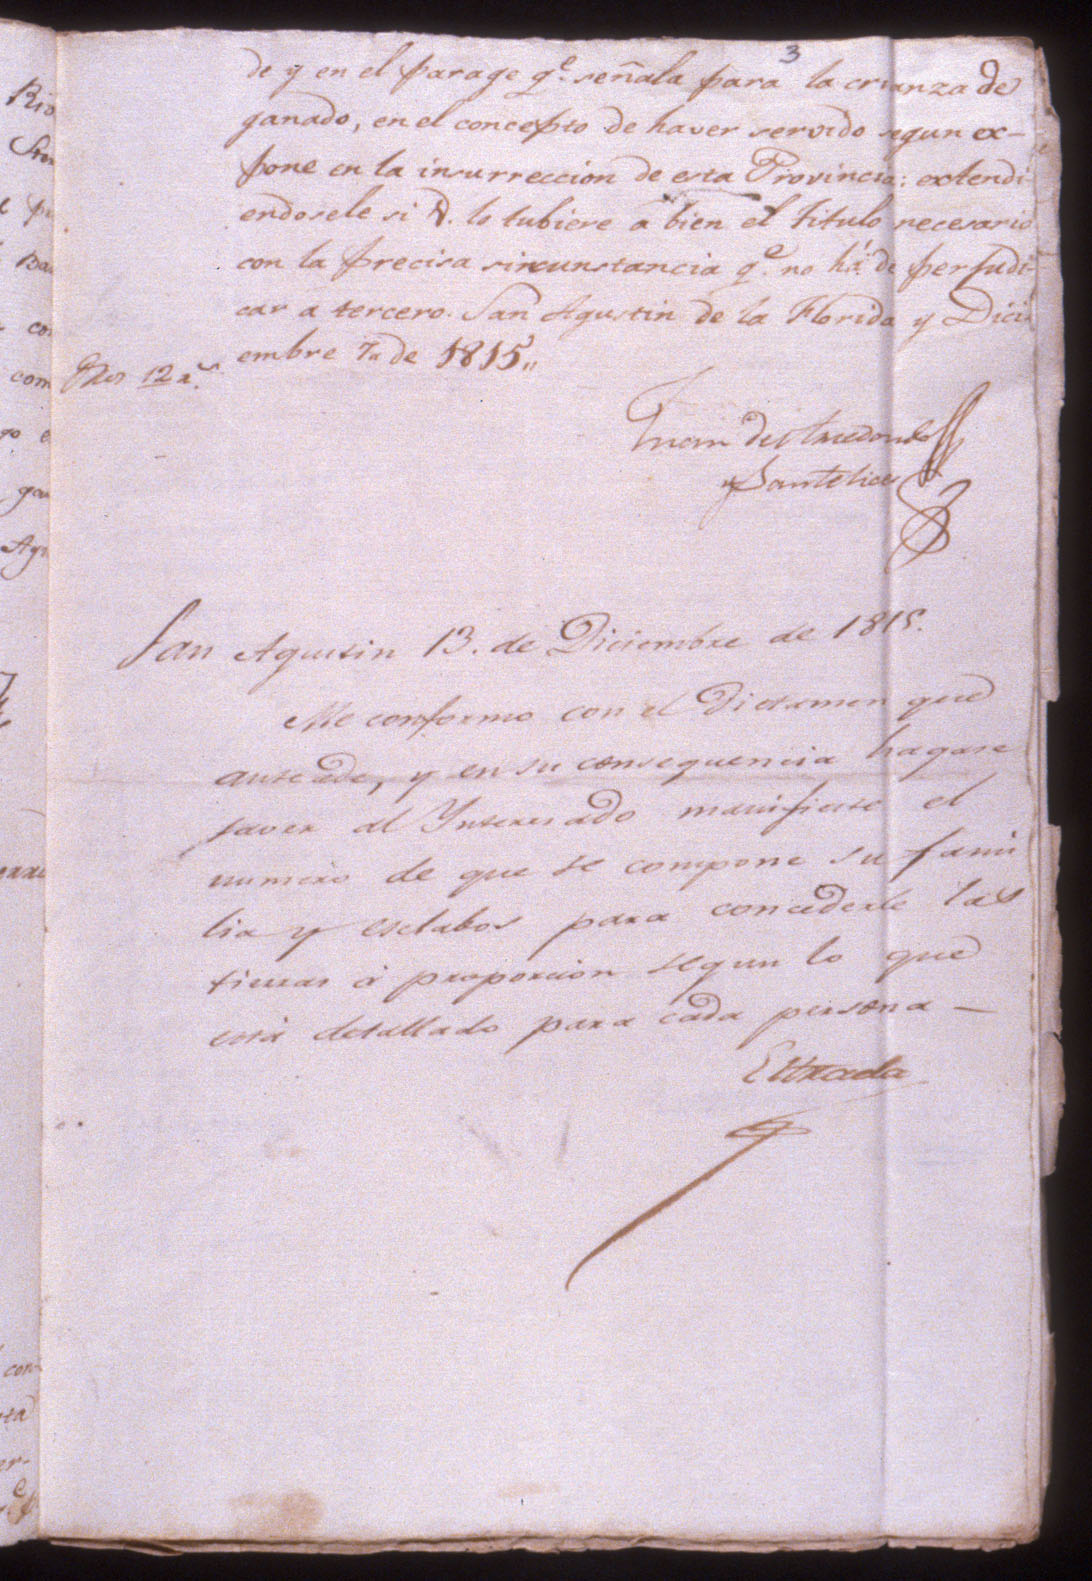 3
de y en el parage q.e señala para la crianza de
ganado, en el concepto de haver servido segun ex-
pone en la insurreccion de esta Provincia: extendi-
endosele si V. lo tubiere á bien el titulo necesario
con la precisa sircunstancia q.e no há de perjudi-
car a tercero. San Agustin de la Florida y Dici-
embre 7,, de 1815,,
12 r.s
Juan de Arredondo
y Santelices
San Agustin 13. de Diciembre de 1815.
Me conformo con el Dictamen que
antecede, y en su consequencia hagase
saver al Interesado manifieste el
numero de que se compone su fami
lia y esclabos para concederle las
tierras á proporcion segun lo que
está detallado para cada persona —
Estrada
Rio
Ba
co
com
go
ga
Ag
con-